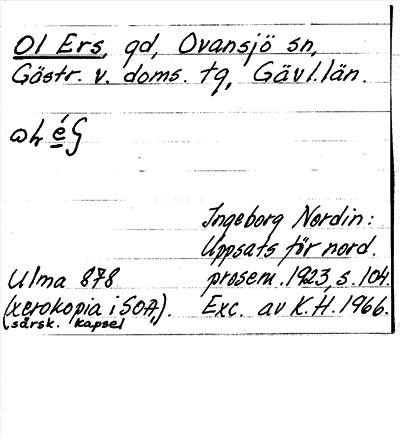 Ol Ers, gd, Ovansjö sn,
Gästr. v. doms. tg, Gävl. län.
Ingeborg Nordin:
Uppsats för nord.
prosem. 1923, s. 104.
Exc. av K.H. 1966.
Ulma 878
(xerokopia i SOA,).
särsk. kapsel